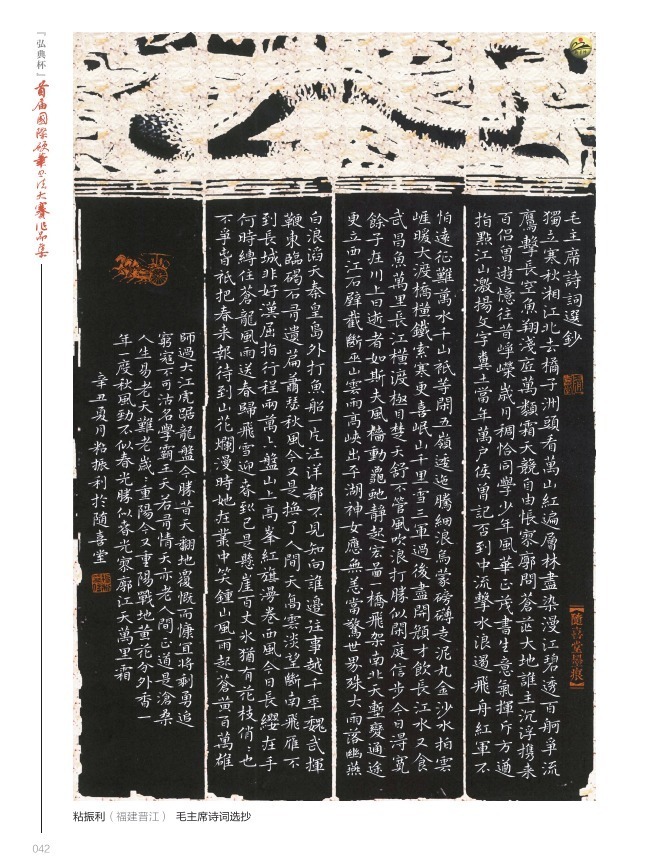 『弘典杯』首届國際硬筆书法大賽作品集
毛主席詩詞選鈔
獨立寒秋湘江北去橘子洲頭看萬山紅遍層林盡染漫江碧透百舸爭流
鷹擊長空魚翔淺底萬類霜天競自由悵寥廓問蒼茫大地誰主沉浮携来
百侣曾遊憶往昔崢嶸歲月稠恰同學少年風華正茂書生意氣揮斥方遒
指點江山激揚文字糞土當年萬户侯曾記否到中流擊水浪遏飛舟紅軍不
【隨喜堂墨痕】
怕遠征難萬水千山祇等閑五嶺逶迤騰細浪烏蒙磅礴走泥丸金沙水拍雲
崖暖大渡橋橫鐵索寒更喜岷山千里雪三軍過後盡開顏才飲長江水又食
武昌魚萬里長江橫渡極目楚天舒不管風吹浪打勝似閑庭信步今日得寬
餘子在川上曰逝者如斯夫風檣動龜蛇靜起宏圖一橋飛架南北天塹變通途
更立西江石壁截斷巫山雲雨高峽出平湖神女應無恙當驚世界殊大雨落幽燕
白浪滔天秦皇島外打魚船一片汪洋都不見知向誰邊往事越千年魏武揮
鞭東臨碣石有遺篇蕭瑟秋風今又是換了人間天高雲淡望斷南飛雁不
到長城非好漢屈指行程兩萬六盤山上高峯紅旗漫卷西風今日長纓在手
何時縛住蒼龍風雨送春歸飛雪迎春到已是懸崖百丈冰猶有花枝俏俏也
不爭春祇把春来報待到山花爛漫時她在叢中笑鍾山風雨起蒼黄百萬雄
師過大江虎踞龍盤今勝昔天翻地覆慨而慷宜將剩勇追
窮寇不可沽名學霸王天若有情天亦老人間正道是滄桑
人生易老天難老歲歲重陽今又重陽戰地黄花分外香一
年一度秋風勁不似春光勝似春光寥廓江天萬里霜
辛丑夏月粘振利於隨喜堂
粘振利（福建晋江） 毛主席诗词选抄
042